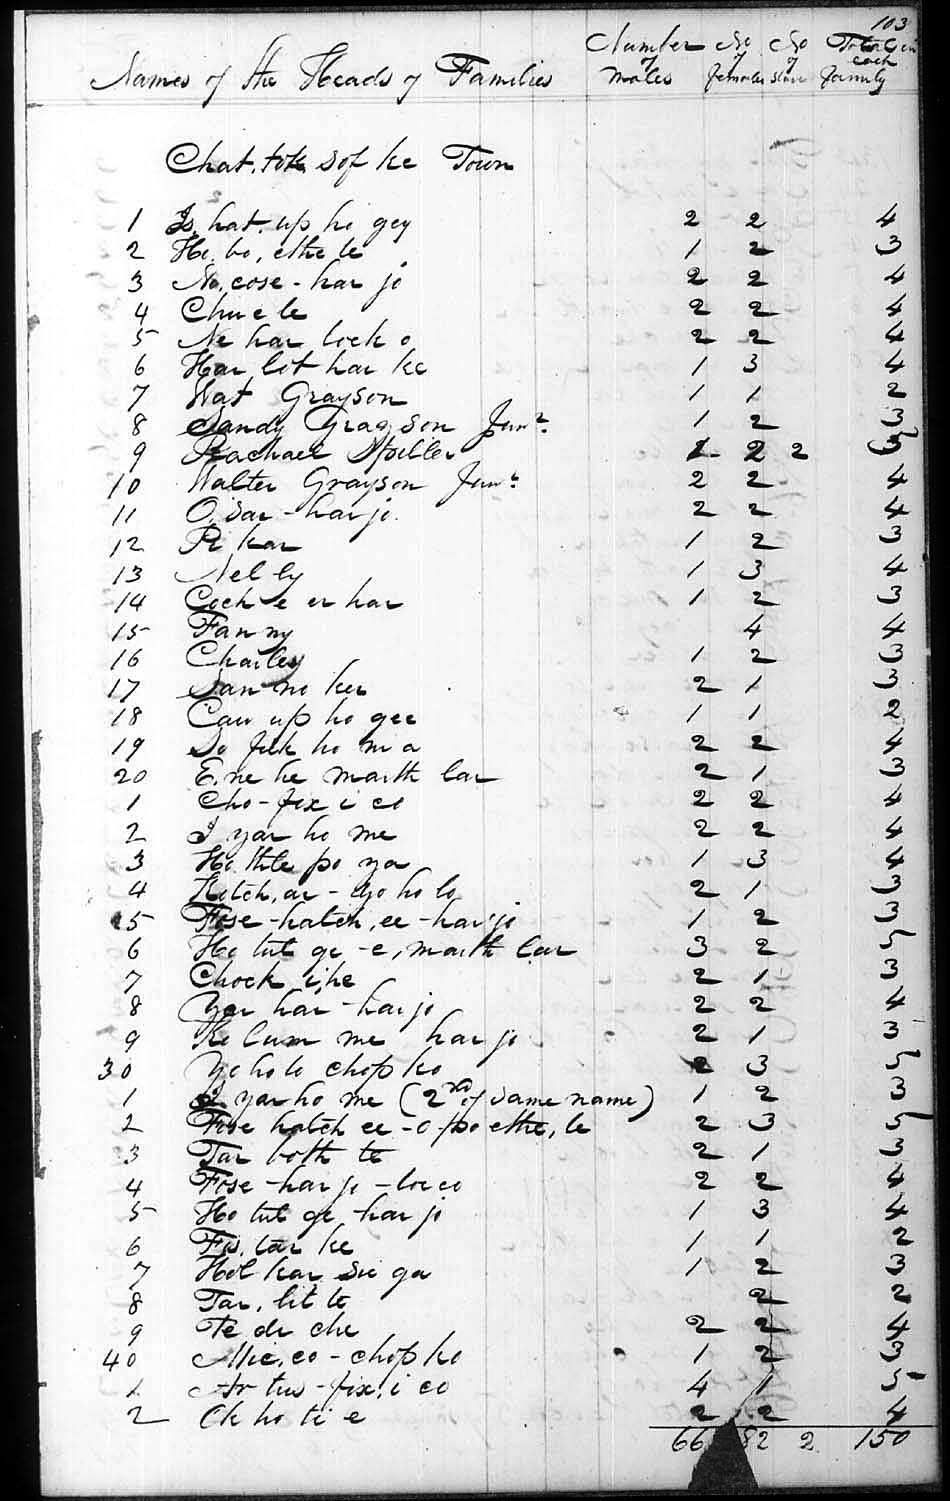 103
Names of the Heads of Families Number of males No of females No of slaves Total in each family
Chat. tok sof ke Town
1 Is. hat. up hi gey 2 2 4
2 Ho. bo, ethe le 1 2 3
3 No, cose - har jo 2 2 4
4 Chu e le 2 2 4
5 Ne har lock o 2 2 4
6 Har lot har ke 1 3 4
7 Wat Grayson 1 1 2
8 Sandy Grayson Junr. 1 2 3
9 Rachael Spiller 2 2
10 Walter Grayson Junr 2 2 4
11 O, sar - har jo. 2 2 4
12 Pi kar 1 2 3
13 Nelly 1 3 4
14 Cock e er har 1 2 3
15 Fanny 4 4
16 Charley 1 2 3
17 San no ker 2 1 3
18 Caw up ho gee 1 1 2
19 So fuk ho ni a 2 2 4
20 E. ne he marth lar 2 1 3
1 Cho - fix i co 2 2 4
2 I yar ho me 2 2 4
3 Ho thle po ya 1 3 4
4 Kotch, ar - Yo ho lo 2 1 3
5 Fose - hatch, ee - har jo 1 2 3
6 Ho tul ge - e, marth lar 3 2 5
7 Chock, i, he 2 1 3
8 Yar har - har jo 2 2 4
9 Ko lum me har jo 2 1 3
30 Yo ho lo chop ko 2 3 5
1 I yar ho me (2nd of same name) 1 2 3
2 Fose hatch ee - o - po ethe, le 2 3 5
3 Tar both te 2 1 3
4 Fose - har jo - loc co 2 2 4
5 Ho tul ge har jo 1 3 4
6 Fis. tar ke 1 1 2
7 Hol kar, sue ga 1 2 3
8 Tar, lit te 2 2
9 Te de che 2 2 4
40 Mic, co - chop ko 1 2 3
1 Ar tus - fix, i co 4 1 5
2 Ok ho ti e 2 2 4
66 82 2 150